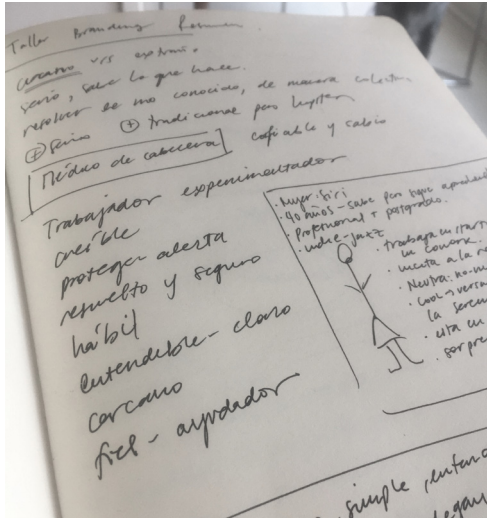 Taller Branding Resumen
cercano vrs extraño
serio, sabe lo que hace.
resolver lo no conocido, de manera colectiva
⊕ serio ⊕ tradicional pero hipster
Médico de cabecera confiable y sabio
Trabajador experimentador
creíble
proteger alerta
resuelto y seguro
hábil
entendible - claro
cercano
fiel - ayudador
· Mujer: Siri
· 40 años - sabe pero sigue aprendiendo
· Profesional + postgrado.
· indie - jazz
· trabaja en start
en cowork.
· invita a la re
· Neutra: no-m
· cool > vers
la seren
· esta en
· sorpre
simple, enten